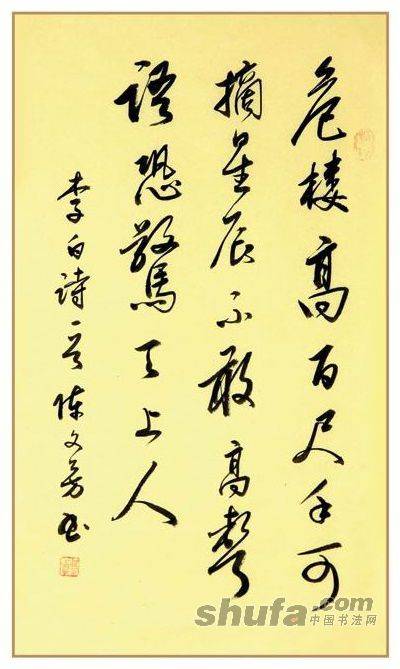 危樓高百尺手可
摘星辰不敢高聲
語恐驚天上人
李白詩一首 陳文芳书
shufa.com
中国书法网